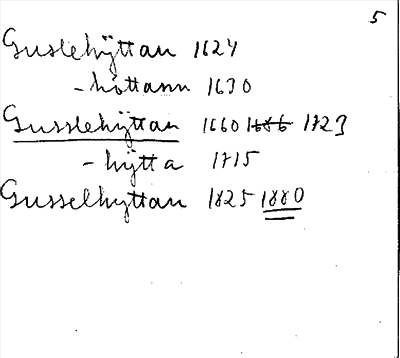 5
Guslehÿttan 1624
- hòttann 1630
Gusslehÿttan 1660 1686 1723
- hÿtta 1715
Gusselhyttan 1825 1880